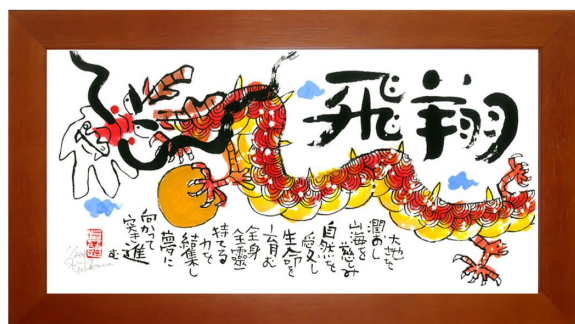 飛翔
大地を
潤おし
山海を慈しみ
自然を
愛し
生命を
育む
全身
全霊
持てる
力を
結集し
夢に
向かって
突進
む